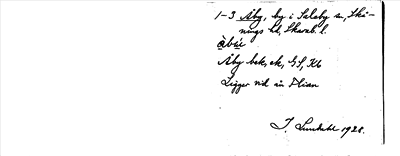 1-3 Åby, by i Saleby sn, Skå-
nings hd, Skarab. l.
å̀bý
Åby bek, ek, GS, Kb
Ligger vid ån Flian
I. Lundahl 1928.